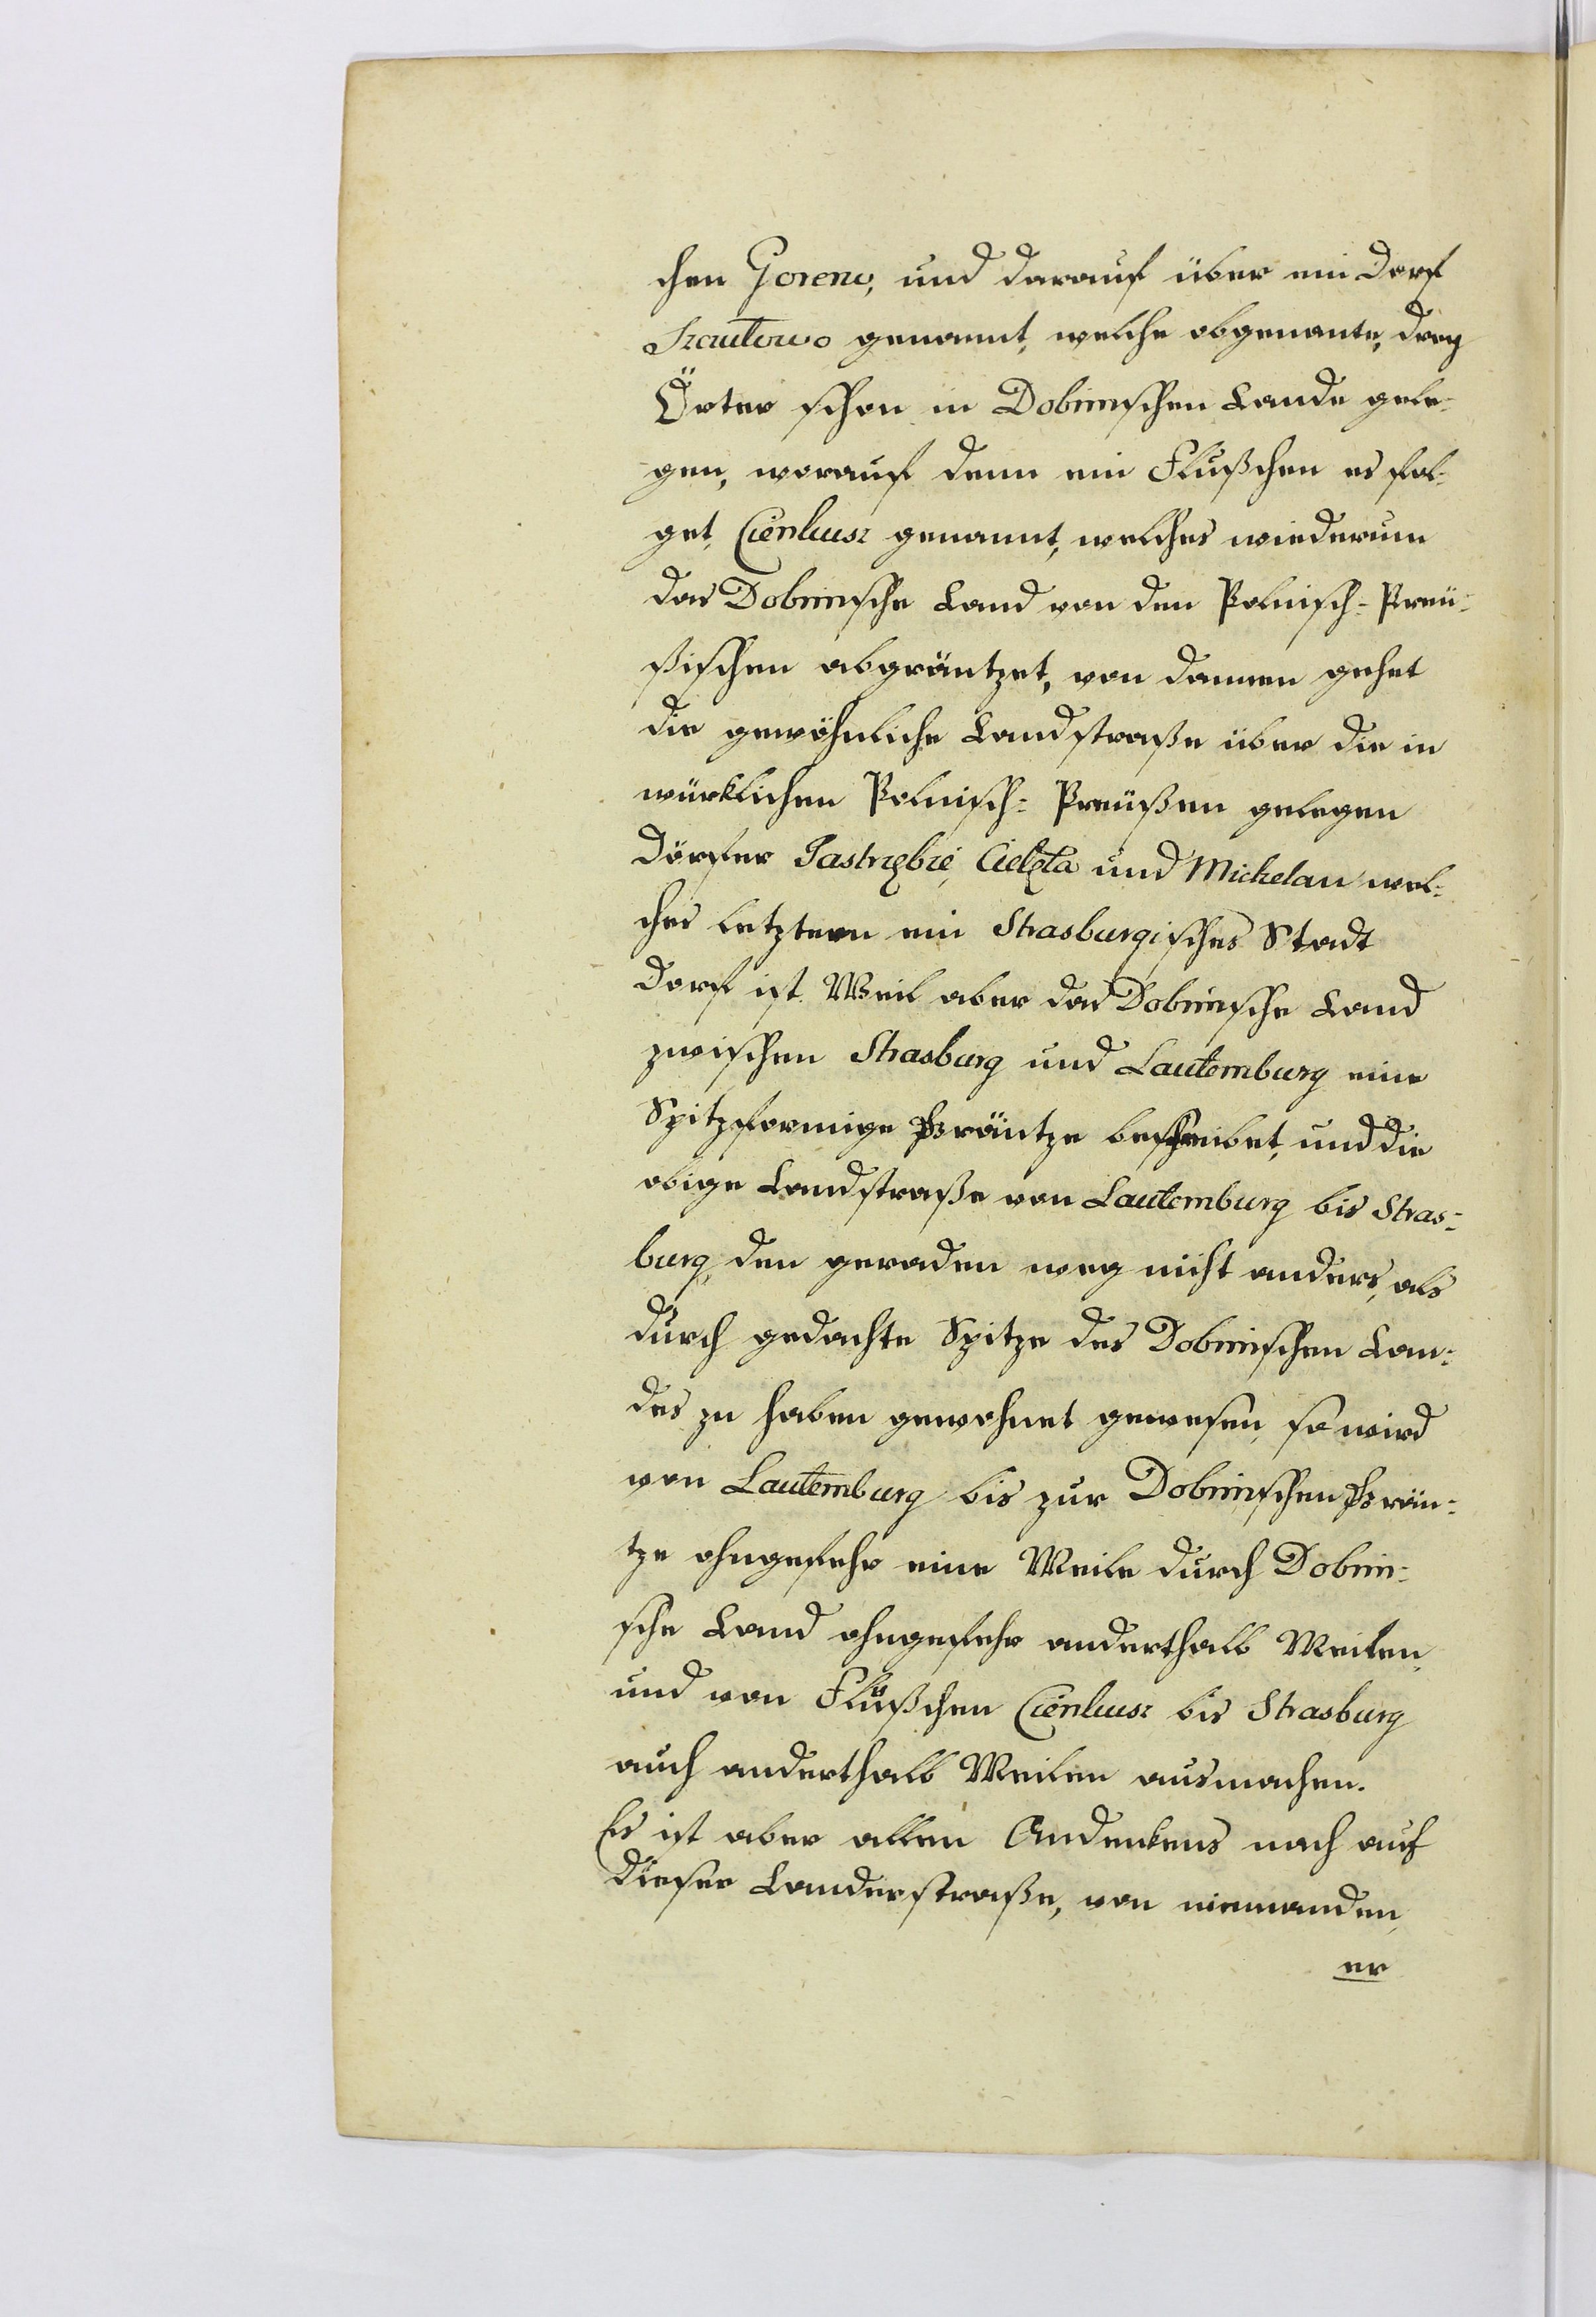 chen Gorenv, und darauf über ein Dorf
Szczutowo genannt, welche obgenante, drey
Örter schon in Dobrinschen Lande gele-
gen, worauf denn ein Flußchen es fol-
get, Cienhusz genannt, welches wiederum
das Dobrinsche Land von den Polnisch-Preu-
ßischen abgräntzet, von dannen gehet
die gewöhnliche Landstraße über die in
würklichen Polnisch-Preüßen gelegen
Dörfer Jastrzębie, Cielęta und Michelau wel-
ches letztern ein Strasburgisches Stadt
Dorf ist. Weil aber das Dobrinsche Land
zwischen Strasburg und Lautemburg eine
Spitzformige Gräntze beschreibet, und die
obige Landstraße von Lautemburg bis Stras-
burg, den geraden weg nicht anders, als
durch gedachte Spitze des Dobrinschen Lan-
des zu haben gewohnet gewesen, so wird
von Lautemburg bis zur Dobrinschen Grän-
tze ohngefehr eine Meile durch Dobrin-
sche Land ohngefehr anderthalb Meilen,
und von Flüßchen Cienhusz bis Strasburg
auch anderthalb Meilen ausmachen.
Es ist aber allen Andenkens nach auf
dieser Landesstraße, von niemanden,
er